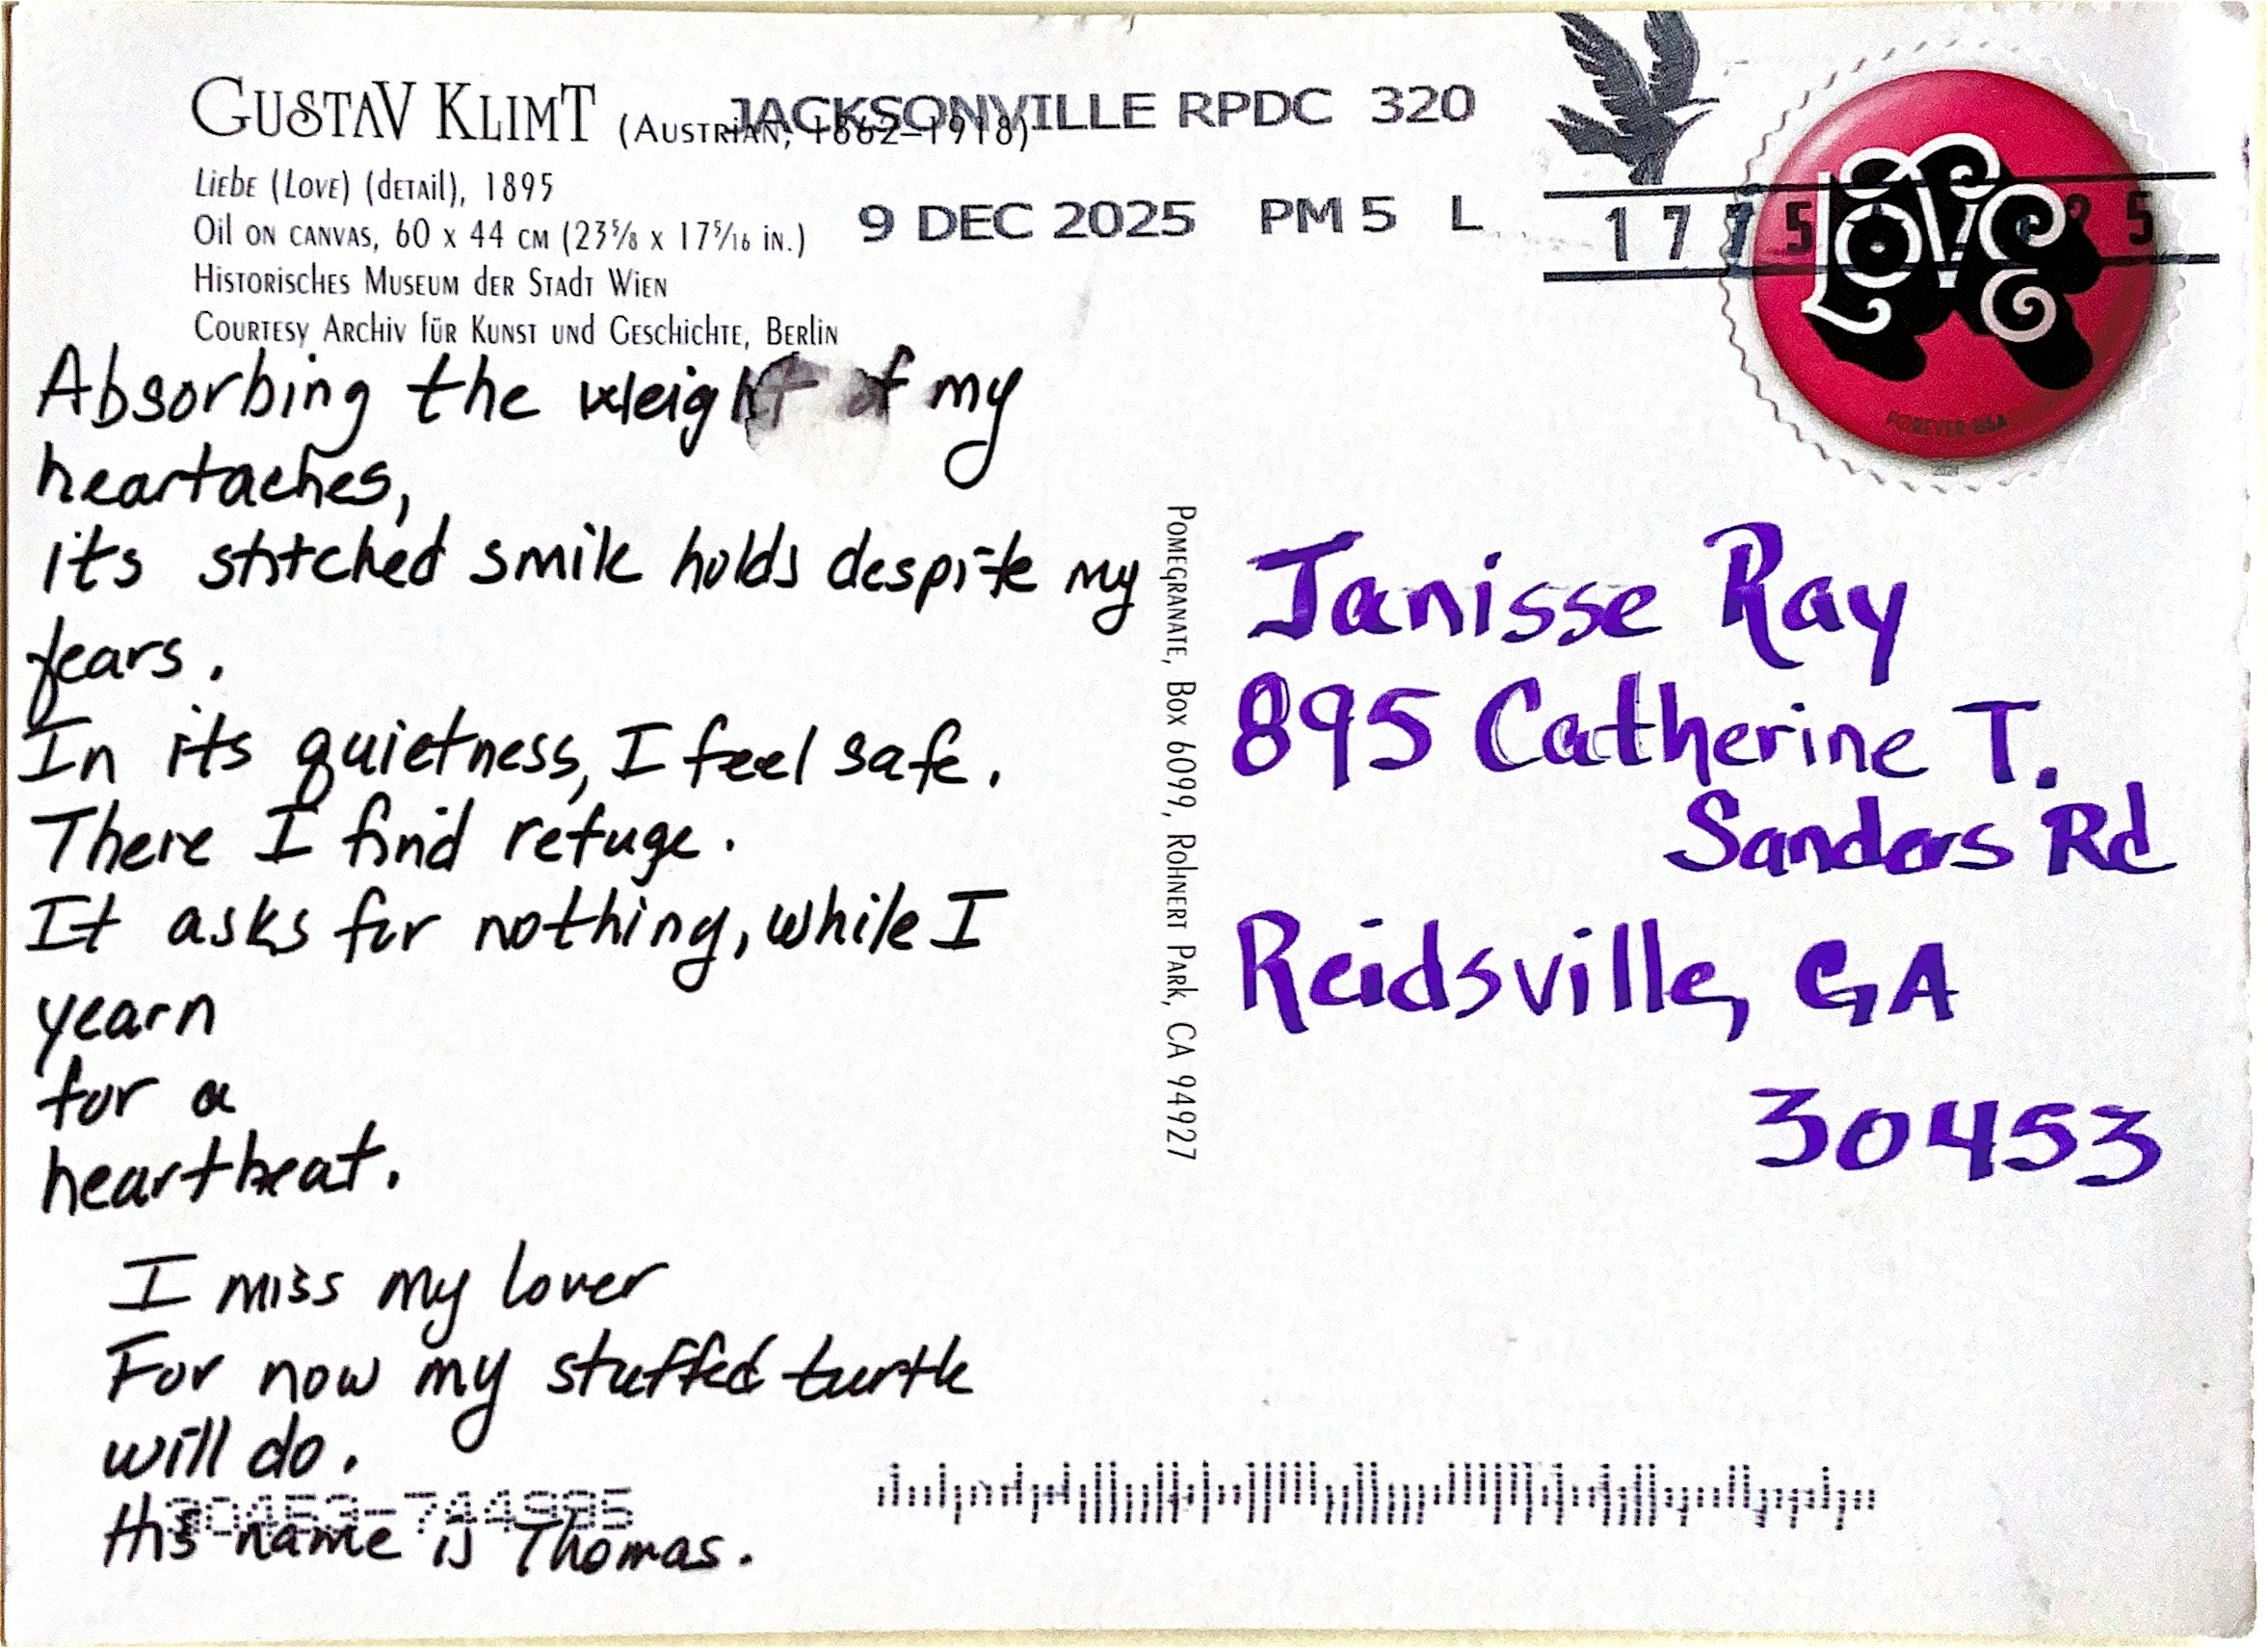 GUSTAV KLIMT (AUSTRIAN, 1862–1918)
JACKSONVILLE RPDC 320
LIEBE (LOVE) (DETAIL), 1895
OIL ON CANVAS, 60 X 44 CM (23⅝ X 17⁵⁄₁₆ IN.)
9 DEC 2025 PM 5 L
HISTORISCHES MUSEUM DER STADT WIEN
COURTESY ARCHIV FÜR KUNST UND GESCHICHTE, BERLIN
1775
25
LOVE
FOREVER USA
Absorbing the weight of my
heartaches,
its stitched smile holds despite my
fears.
In its quietness, I feel safe.
There I find refuge.
It asks for nothing, while I
yearn
for a
heartbeat.
I miss my lover
For now my stuffed turtle
will do.
His name is Thomas.
30453-744995
POMEGRANATE, BOX 6099, ROHNERT PARK, CA 94927
Janisse Ray
895 Catherine T.
Sanders Rd
Reidsville, GA
30453